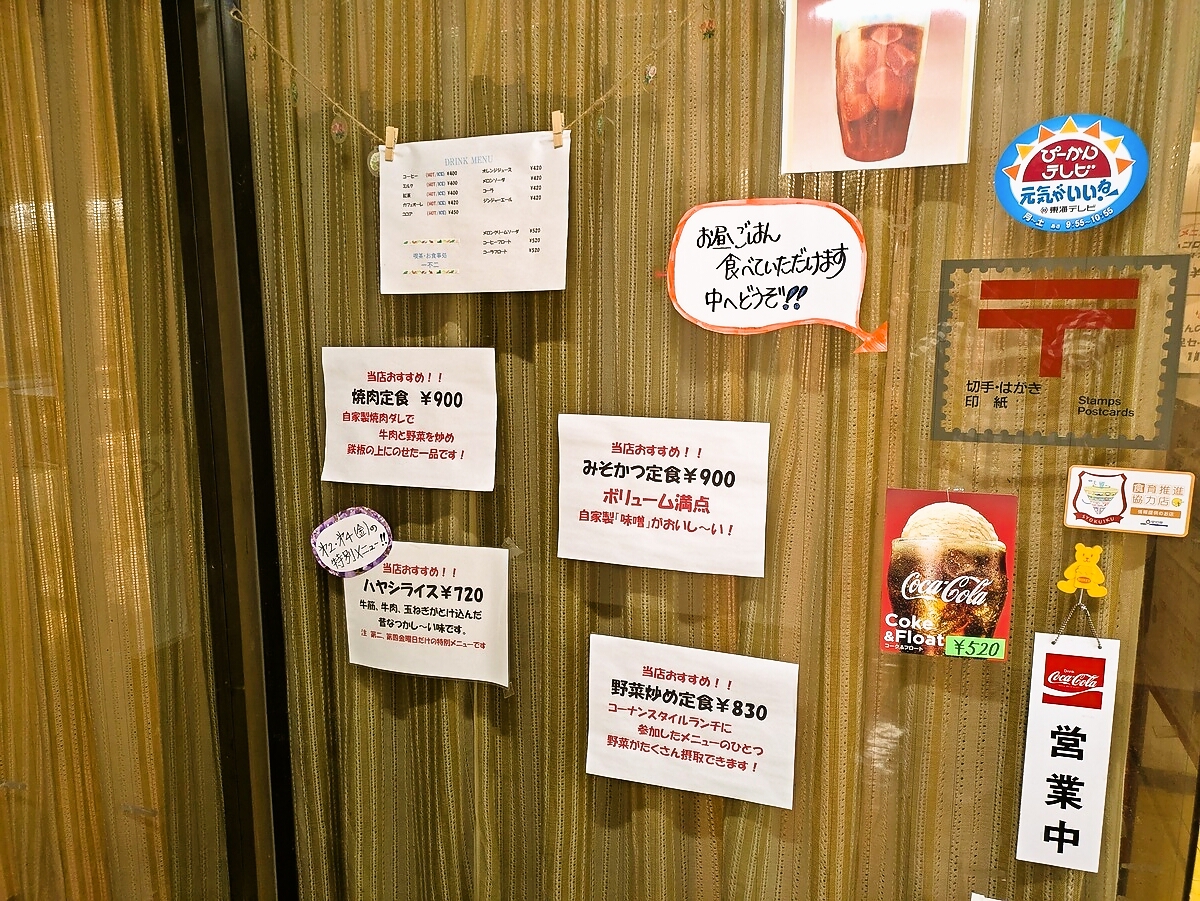 DRINK MENU
コーヒー (HOT/ICE) ¥400
ミルク (HOT/ICE) ¥400
紅茶 (HOT/ICE) ¥400
カフェオーレ (HOT/ICE) ¥420
ココア (HOT/ICE) ¥450
オレンジジュース ¥420
メロンソーダ ¥420
コーラ ¥420
ジンジャーエール ¥420
メロンクリームソーダ ¥520
コーヒーフロート ¥520
コーラフロート ¥520
喫茶・お食事処
一不二
お昼ごはん
食べていただけます
中へどうぞ!!
ぴーかん
テレビ
元気がいいね
東海テレビ
月~土 9:55~10:55
切手・はがき
印 紙
Stamps
Postcards
当店おすすめ！！
焼肉定食 ¥900
自家製焼肉ダレで
牛肉と野菜を炒め
鉄板の上にのせた一品です！
当店おすすめ！！
みそかつ定食¥900
ボリューム満点
自家製「味噌」がおいし～い！
第2・第4(金)の
特別メニュー!!
当店おすすめ！！
ハヤシライス¥720
牛筋、牛肉、玉ねぎがとけ込んだ
昔なつかし～い味です。
注 第二、第四金曜日だけの特別メニューです
当店おすすめ！！
野菜炒め定食¥830
コーナンスタイルランチに
参加したメニューのひとつ
野菜がたくさん摂取できます！
食育推進
協力店
情報提供のお店
SYOKUIKU
Coca-Cola
Coke
&Float
コーク&フロート
¥520
Drink
Coca-Cola
営業中